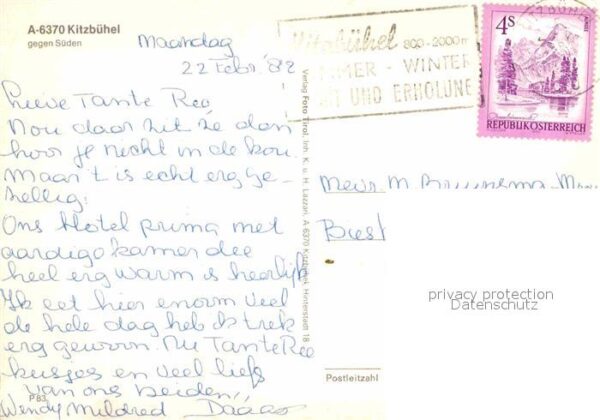 A-6370 Kitzbühel
gegen Süden
Maandag
22 Febr. '82
Lieve Tante Ree,
Nou daar zit ze dan
hoor je nicht in de kou.
Maar 't is echt erg ge-
zellig.
Ons Hotel prima met
aardige kamer die
heel erg warm is heerlijk
Ik eet hier enorm veel
de hele dag heb ik trek
erg gewoon. Nu Tante Ree
kusjes en veel liefs
van ons beiden,
Wendy Mildred Daaag
P 83
Kitzbühel 800-2000m
SOMMER - WINTER
UND ERHOLUNG
4S
REPUBLIK ÖSTERREICH
Verlag Foto Tirol, Inh. K. u. H. Lazzari, A-6370 Kitzbühel, Hinterstadt 18
Mevr. M
Best
privacy protection
Datenschutz
Postleitzahl